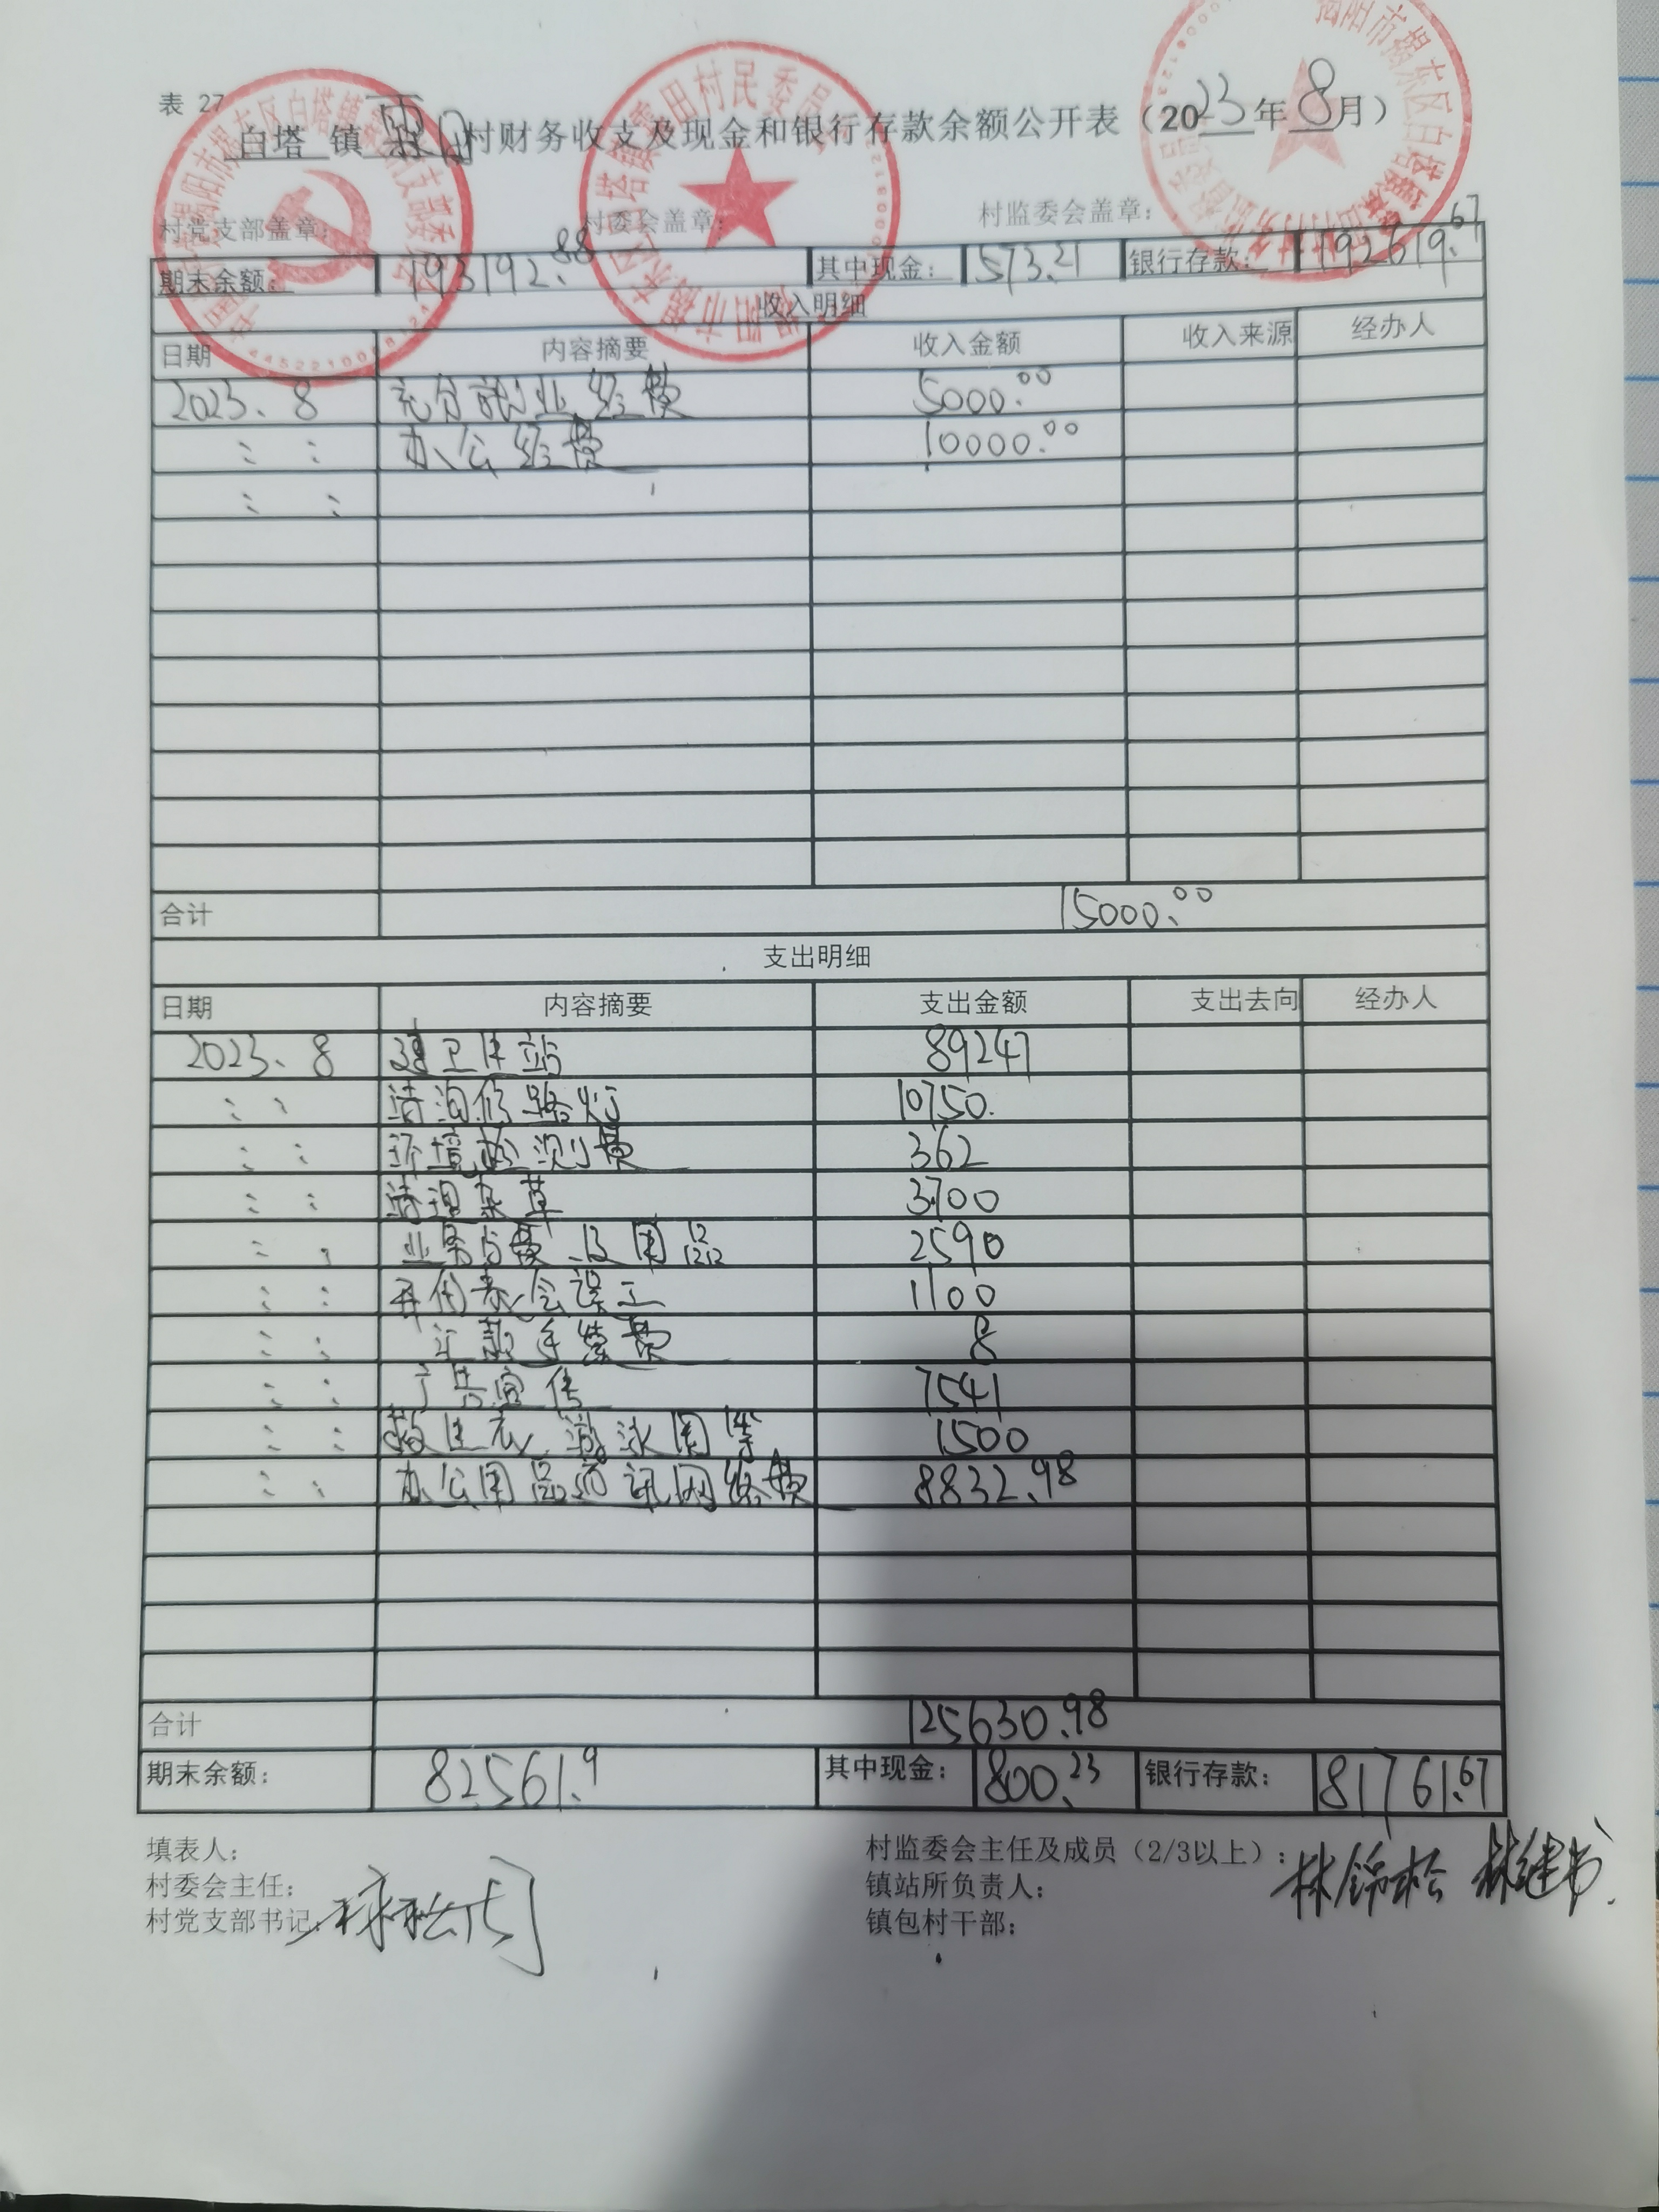 表 27
白塔 镇 霖田村财务收支及现金和银行存款余额公开表（2023年8月）
村党支部盖章： 村委会盖章： 村监委会盖章：
期末余额： 193192.88 其中现金： 573.21 银行存款： 192619.67
收入明细
日期 内容摘要 收入金额 收入来源 经办人
2023、8 充分就业经费 5000.00
办公经费 10000.00
合计 15000.00
支出明细
日期 内容摘要 支出金额 支出去向 经办人
2023、8 建卫生站 89247
清沟修路灯 10750.
环境检测费 362
清理杂草 3700
业务 费 及用品 2590
开代表会误工 1100
汇款手续费 8
广告宣传 7541
救生衣、游泳圈等 1500
办公用品通讯网络费 8832.98
合计 125630.98
期末余额： 82561.9 其中现金： 800.23 银行存款： 81761.67
填表人： 村监委会主任及成员（2/3以上）：林锦松 林继书
村委会主任： 镇站所负责人：
村党支部书记： 镇包村干部：